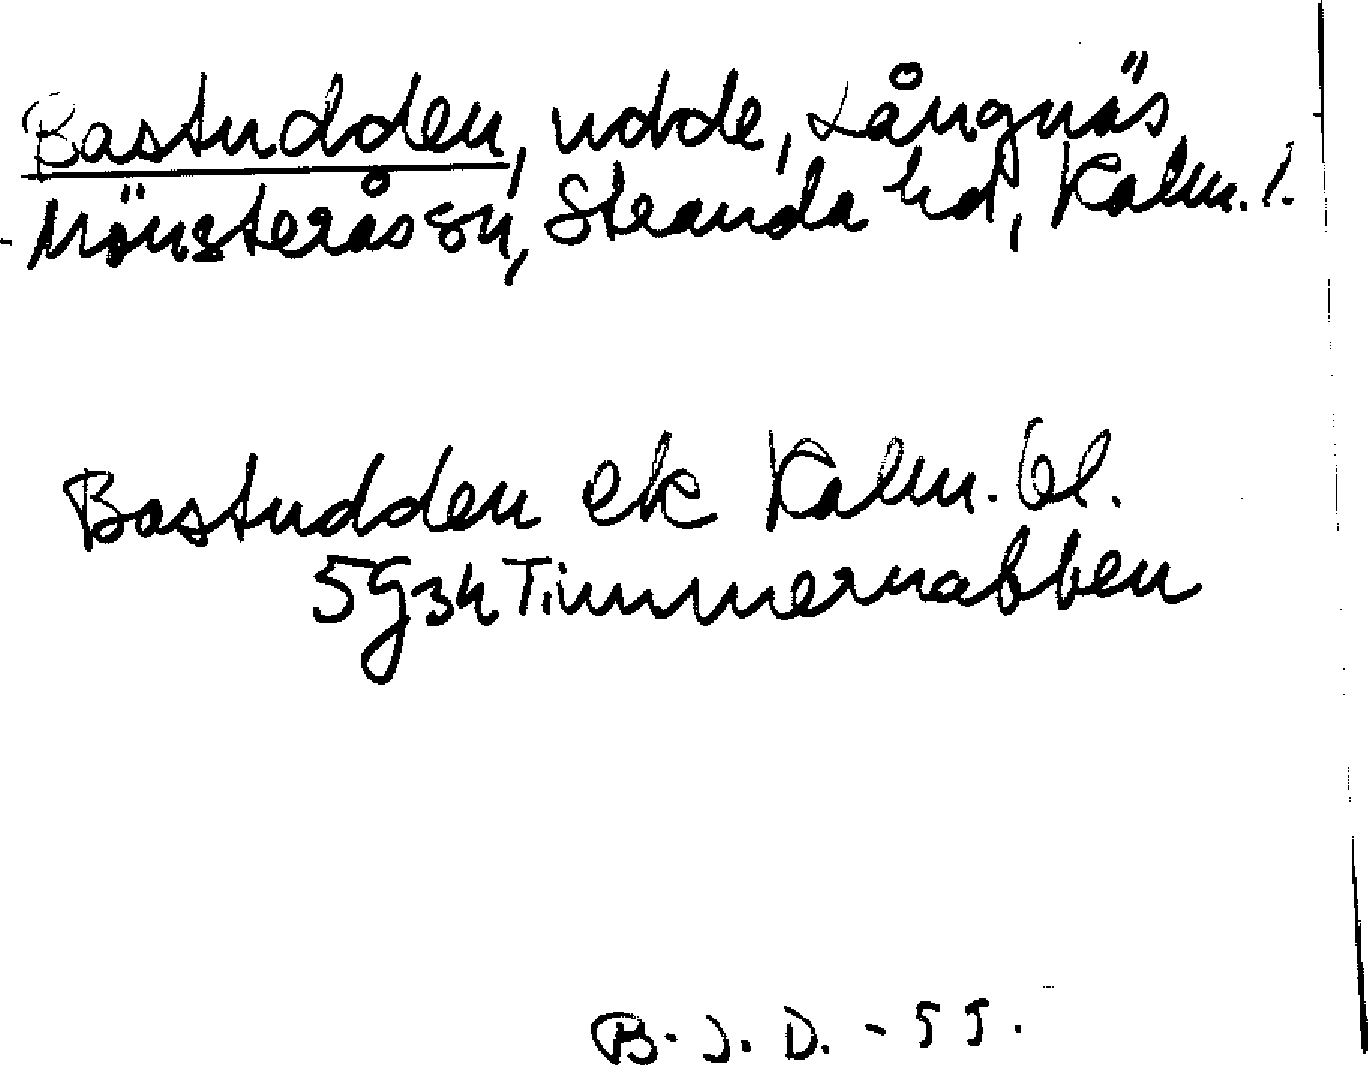 Bastudden, udde, Långnäs
Mönsterås sn, Stranda hd, Kalm. l.
Bastudden ek Kalm. bl.
5G3h Timmernabben
B. J. D. - 55.